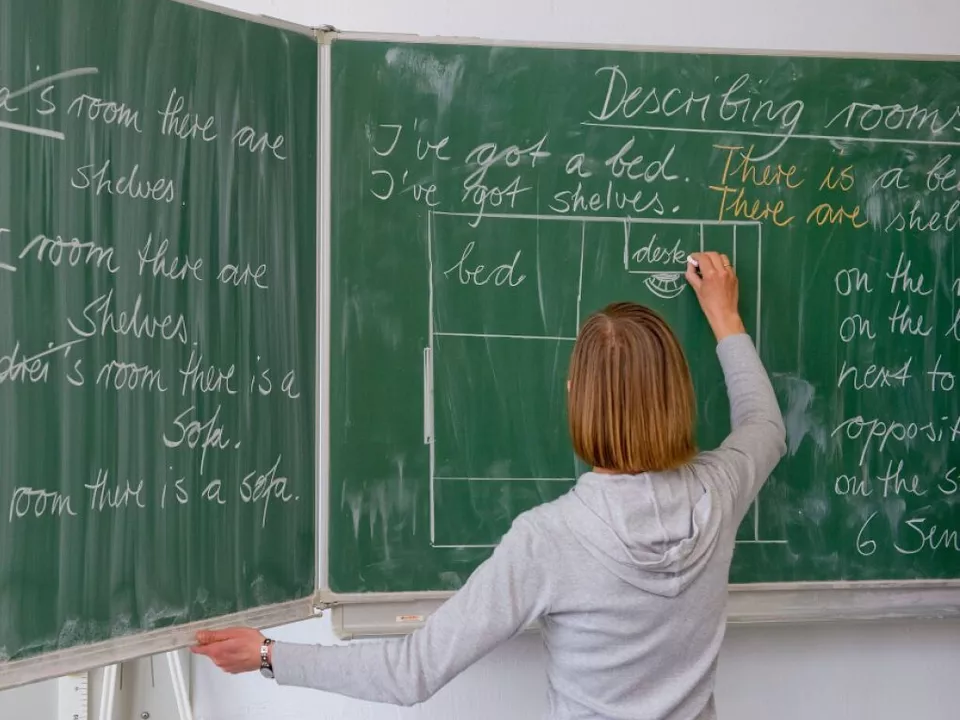 a's room there are
shelves.
room there are
shelves.
drei's room there is a
sofa.
room there is a sofa.
Describing rooms
I've got a bed. There is a be
I've got shelves. There are shel
bed
desk
on the
on the l
next to
opposit
on the s
6 Sen